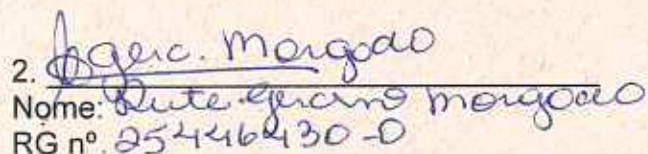 2. Morgado
Nome: Rute Morgado
RG nº. 25446430-0